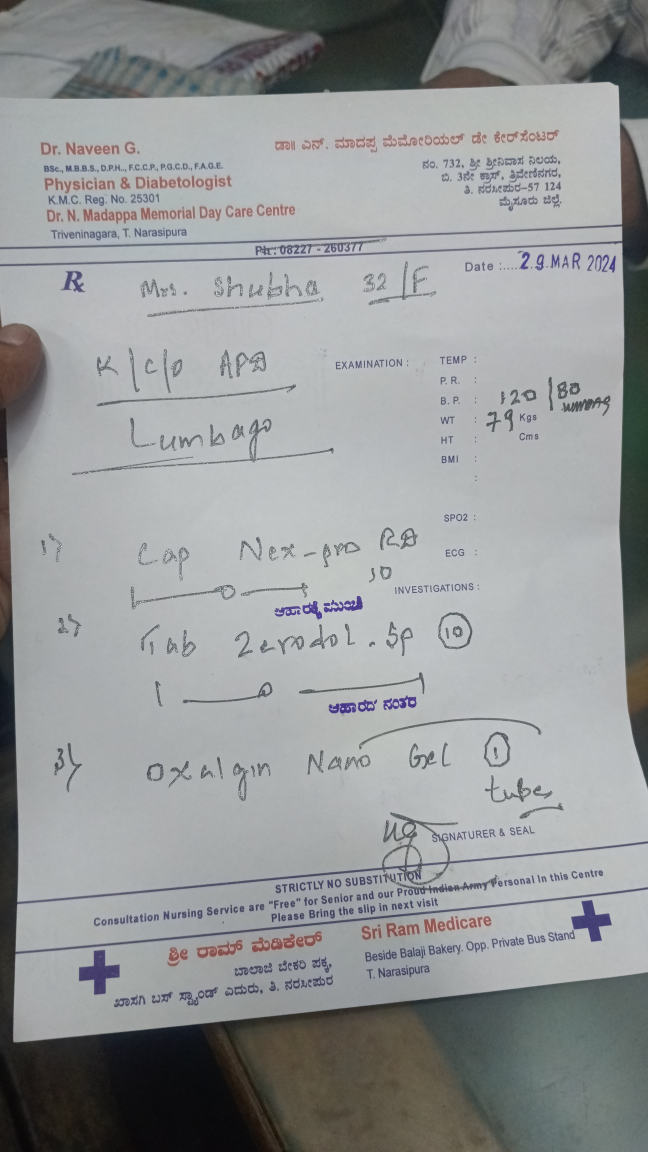 Dr. Naveen G.
BSc., M.B.B.S., D.P.H., F.C.C.P., P.G.C.D., F.A.G.E.
Physician & Diabetologist
K.M.C. Reg. No. 25301
Dr. N. Madappa Memorial Day Care Centre
Triveninagara, T. Narasipura
ಡಾ|| ಎನ್. ಮಾದಪ್ಪ ಮೆಮೋರಿಯಲ್ ಡೇ ಕೇರ್‌ಸೆಂಟರ್
ನಂ. 732, ಶ್ರೀ ಶ್ರೀನಿವಾಸ ನಿಲಯ,
ಬಿ. 3ನೇ ಕ್ರಾಸ್, ತ್ರಿವೇಣಿನಗರ,
ತಿ. ನರಸೀಪುರ-57 124
ಮೈಸೂರು ಜಿಲ್ಲೆ.
Ph.: 08227 - 260377
Rx
Date :....29 MAR 2024
Mrs. Shubha 32/F
K/C/O APD
Lumbago
EXAMINATION :
TEMP :
P. R. :
B. P. : 120/80 mmHg
WT : 79 Kgs
HT : Cms
BMI :
:
SPO2 :
ECG :
INVESTIGATIONS :
1) Cap Nex-pro RD
10
ಆಹಾರಕ್ಕೆ ಮುಂಚೆ
2) Tab Zerodol-Sp 10
1 0 1
ಆಹಾರದ ನಂತರ
3) Oxalgin Nano Gel 1
tube
SIGNATURER & SEAL
STRICTLY NO SUBSTITUTION
Consultation Nursing Service are "Free" for Senior and our Proud Indian Army Personal In this Centre
Please Bring the slip in next visit
ಶ್ರೀ ರಾಮ್ ಮೆಡಿಕೇರ್
ಬಾಲಾಜಿ ಬೇಕರಿ ಪಕ್ಕ,
ಖಾಸಗಿ ಬಸ್ ಸ್ಟ್ಯಾಂಡ್ ಎದುರು, ತಿ. ನರಸೀಪುರ
Sri Ram Medicare
Beside Balaji Bakery. Opp. Private Bus Stand
T. Narasipura